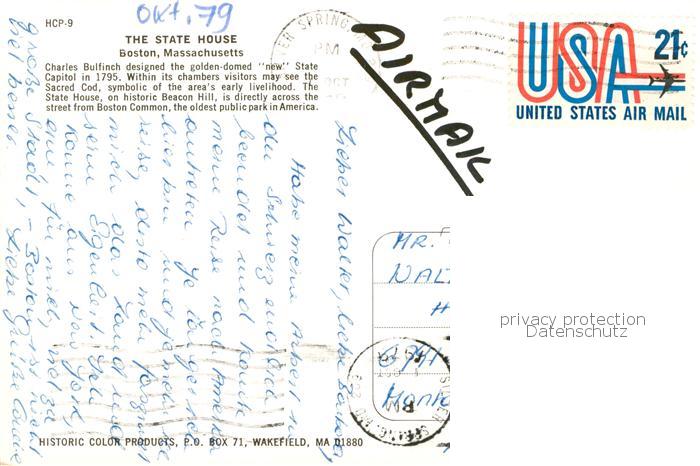 HCP-9
Okt. 79
THE STATE HOUSE
Boston, Massachusetts
Charles Bulfinch designed the golden-domed "new" State
Capitol in 1795. Within its chambers visitors may see the
Sacred Cod, symbolic of the area's early livelihood. The
State House, on historic Beacon Hill, is directly across the
street from Boston Common, the oldest public park in America.
SPRING
PM
OCT
AIRMAIL
USA 21c
UNITED STATES AIR MAIL
Lieber Walter, liebe
Habe meine Arbeit in
der Schweiz endlich
beendet und konnte
meine Reise nach Amerika
antreten. Je länger ich
hier bin und je mehr ich
reise, desto mehr fasziniert
mich das Land
seine Eigenart. Ich
komme aus New York,
für mich,
große Stadt, - Boston ist nicht
viel besser. Liebe Grüße
MR.
WAL
H
privacy protection
Datenschutz
HISTORIC COLOR PRODUCTS, P.O. BOX 71, WAKEFIELD, MA 01880